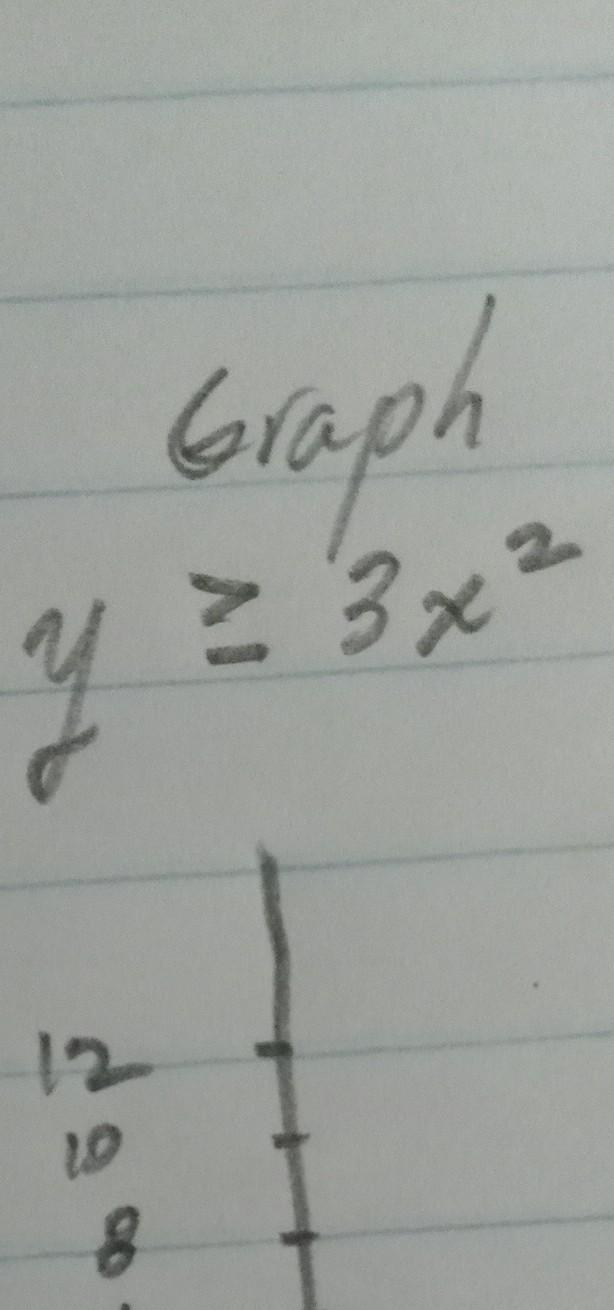 Graph
y ≥ 3x²
12
10
8